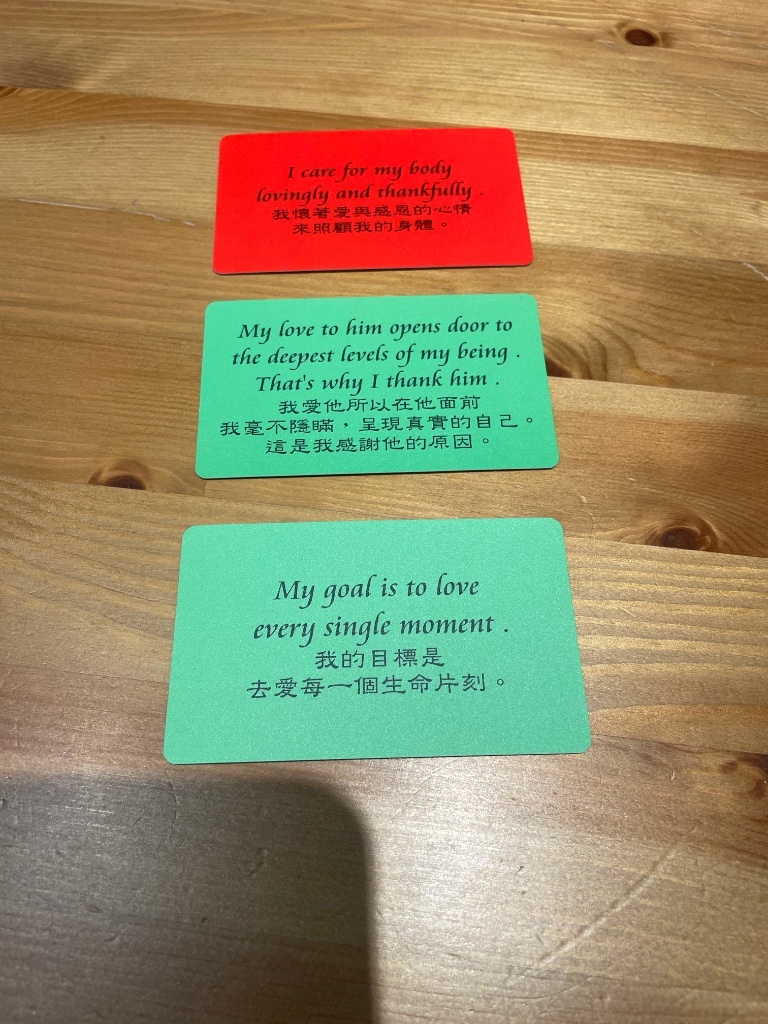 I care for my body
lovingly and thankfully .
我懷著愛與感恩的心情
來照顧我的身體。
My love to him opens door to
the deepest levels of my being .
That's why I thank him .
我愛他所以在他面前
我毫不隱瞞，呈現真實的自己。
這是我感謝他的原因。
My goal is to love
every single moment .
我的目標是
去愛每一個生命片刻。